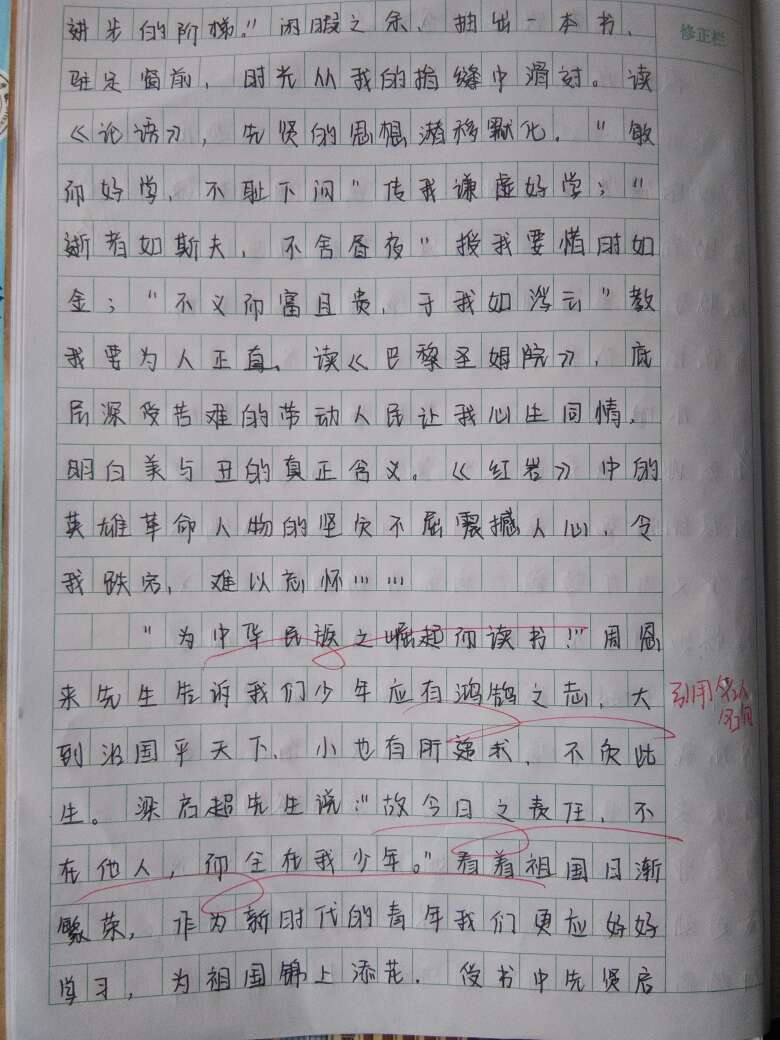 进步的阶梯。"闲暇之余，抽出一本书，
修正栏
驻足窗前，时光从我的指缝中滑过。读
《论语》，先贤的思想潜移默化。"敏
而好学，不耻下问"传我谦虚好学；"
逝者如斯夫，不舍昼夜"授我要惜时如
金；"不义而富且贵，于我如浮云"教
我要为人正直。读《巴黎圣姆院》，底
层深受苦难的劳动人民让我心生同情，
明白美与丑的真正含义。《红岩》中的
英雄革命人物的坚贞不屈震撼人心，令
我跌宕，难以忘怀……
"为中华民族之崛起而读书！"周恩
来先生告诉我们少年应有鸿鹄之志，大
引用名人
名句
到治国平天下，小也有所追求，不负此
生。梁启超先生说："故今日之责任，不
在他人，而全在我少年。"看着祖国日渐
繁荣，作为新时代的青年我们更应好好
学习，为祖国锦上添花。使书中先贤启